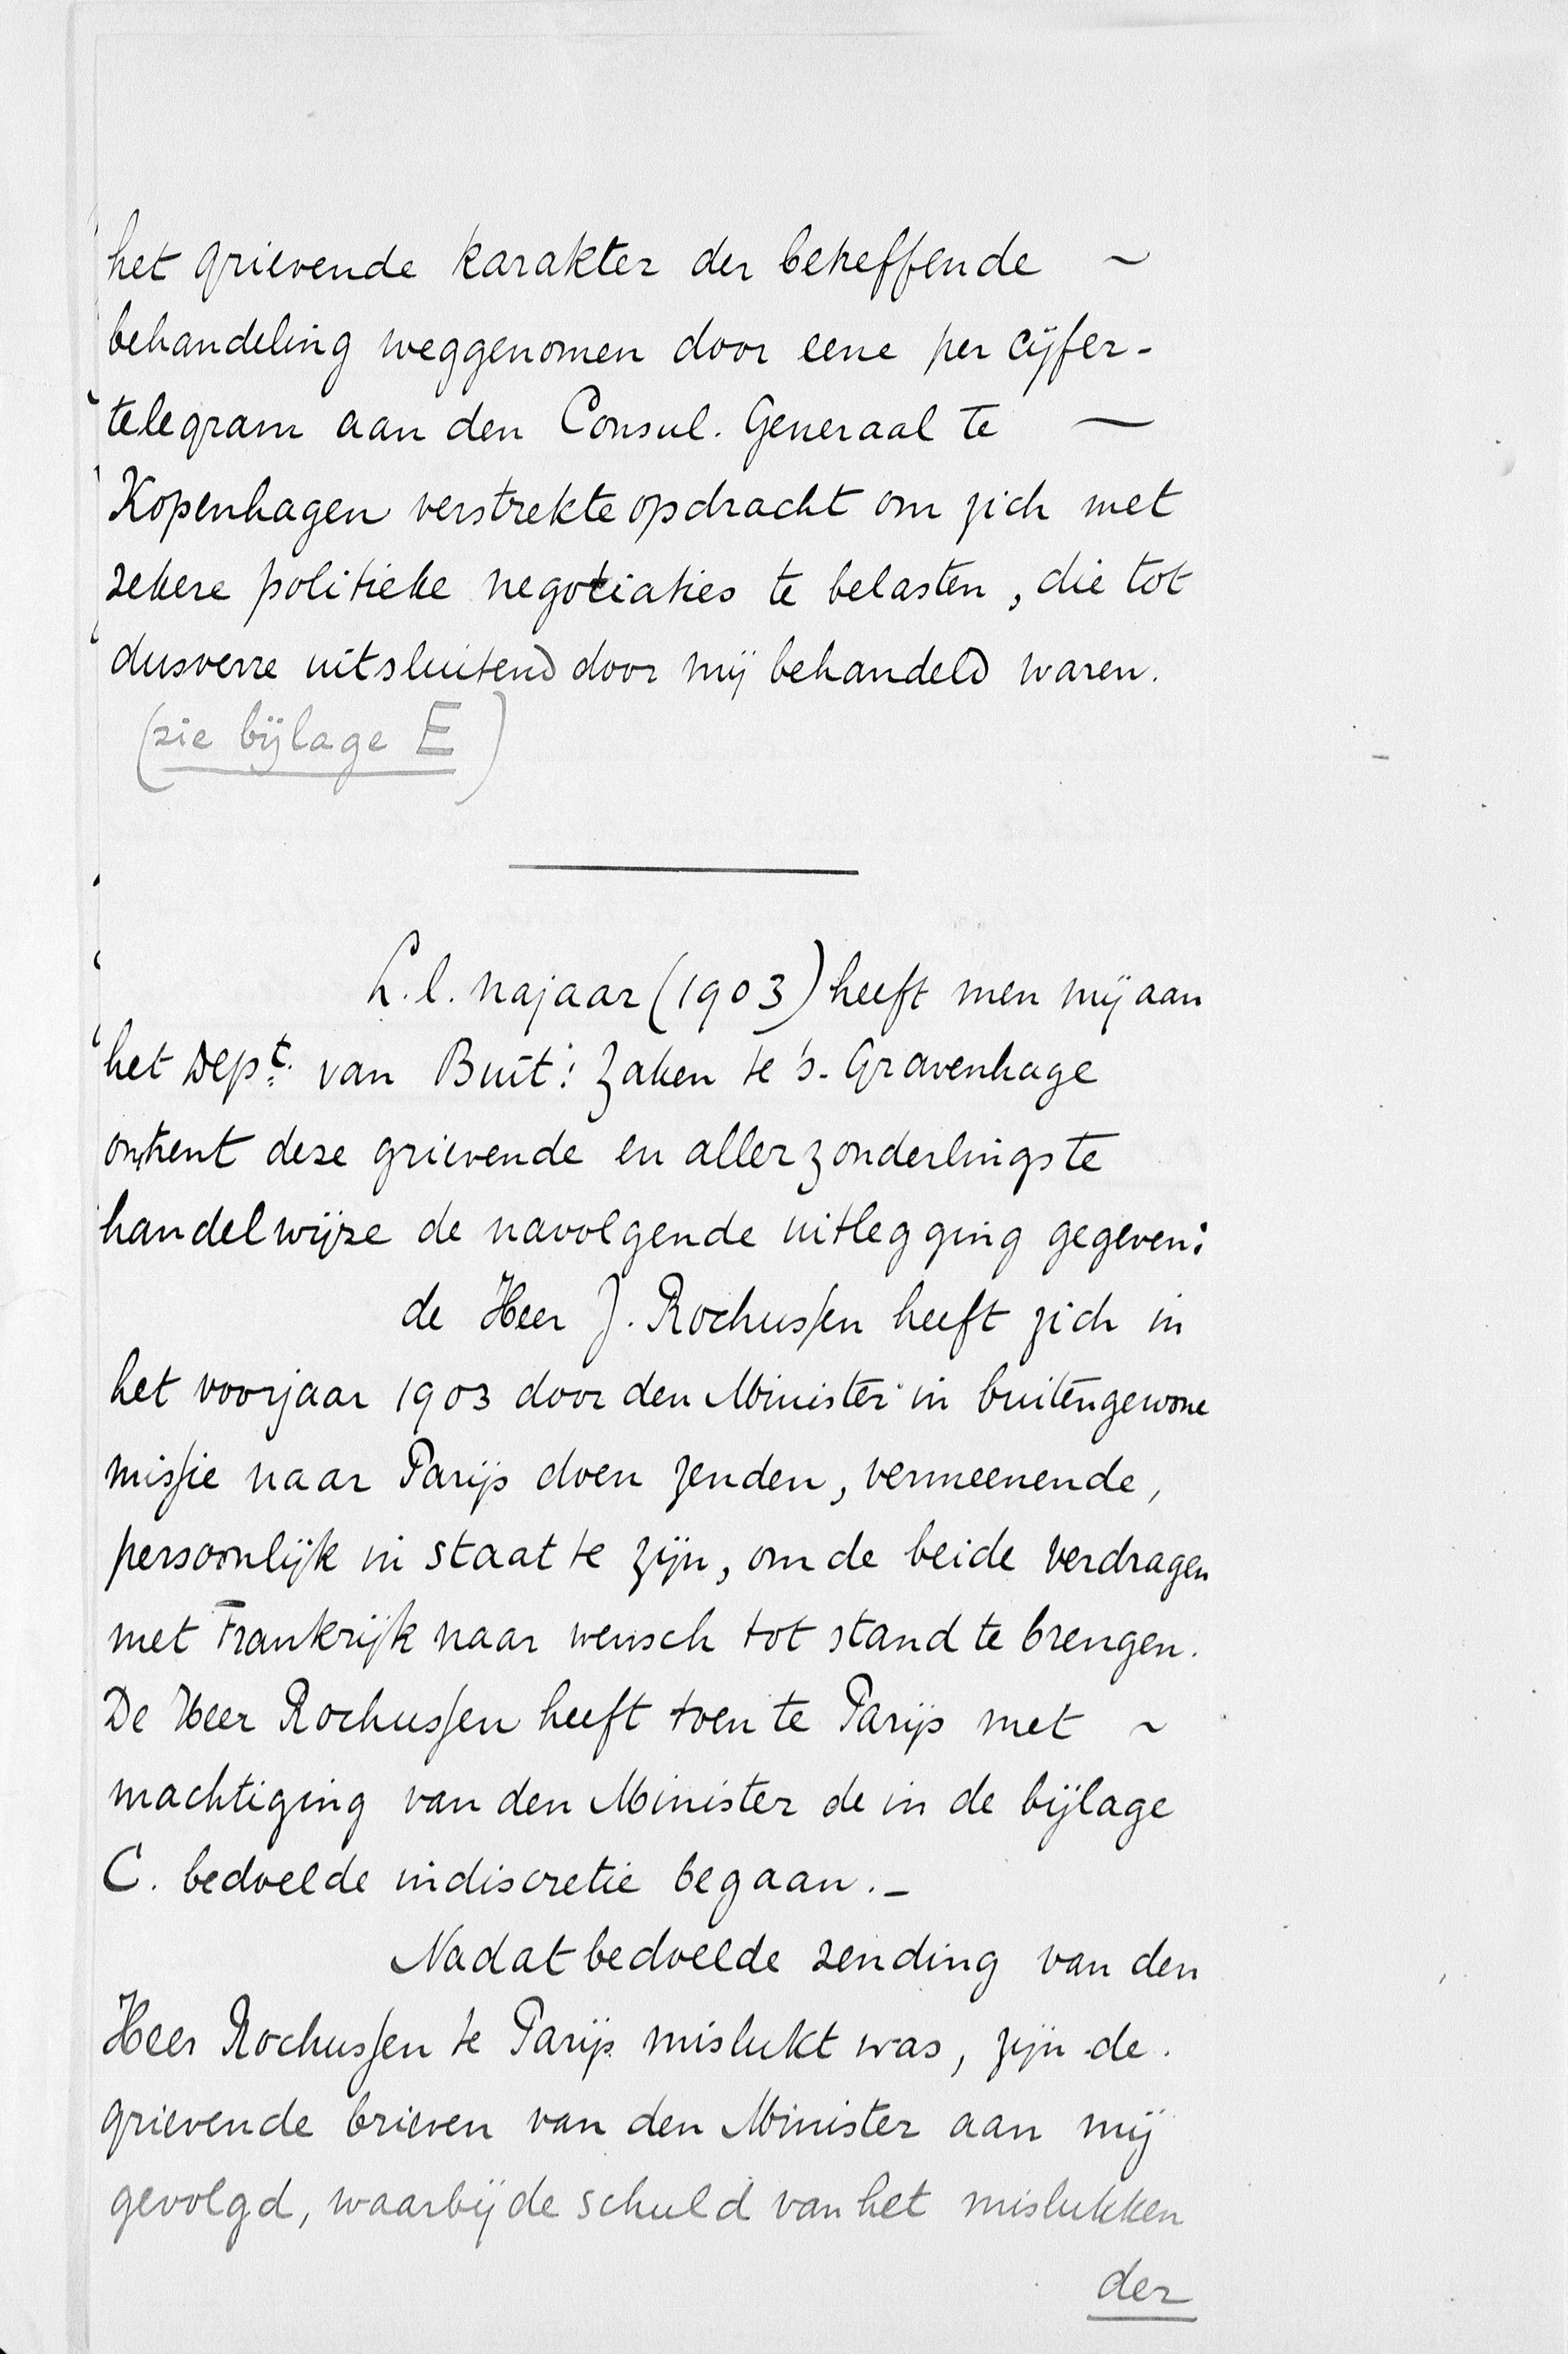 het grievende karakter der betreffende ~
behandeling weggenomen door eene per cijfer-
telegram aan den Consul. Generaal te ~
Kopenhagen verstrekte opdracht om zich met
zekere politieke negotiaties te belasten, die tot
dusverre uitsluitend door mij behandeld waren.
(zie bijlage E)
L.l. najaar (1903) heeft men mij aan
het Dept. van Buit: Zaken te 's-Gravenhage
omtrent deze grievende en allerzonderlingste
handelwijze de navolgende uitlegging gegeven:
de Heer J. Rochussen heeft zich in
het voorjaar 1903 door den Minister in buitengewone
missie naar Parijs doen zenden, vermeenende,
persoonlijk in staat te zijn, om de beide verdragen
met Frankrijk naar wensch tot stand te brengen.
De Heer Rochussen heeft toen te Parijs met ~
machtiging van den Minister de in de bijlage
C. bedoelde indiscretie begaan. -
Nadat bedoelde zending van den
Heer Rochussen te Parijs mislukt was, zijn de
grievende brieven van den Minister aan mij
gevolgd, waarbij de schuld van het mislukken
der